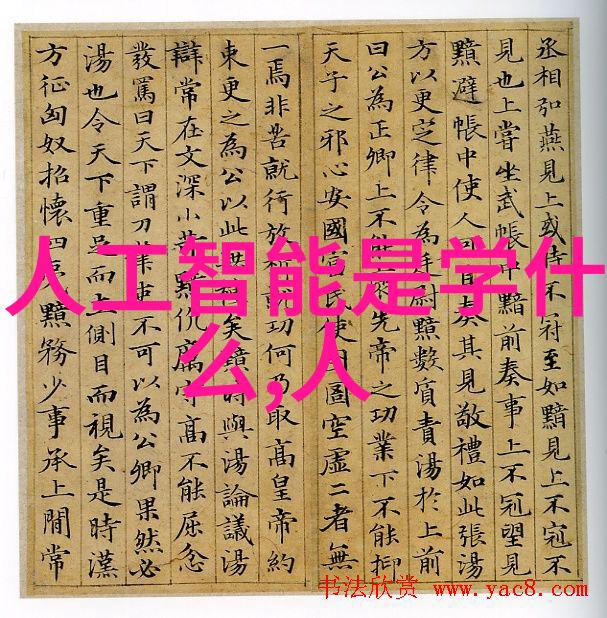 丞相弘燕見上或時不冠至如黯見上不冠不
見也上嘗坐武帳中黯前奏事上不冠望見
黯避帳中使人可其奏其見敬禮如此張湯
方以更定律令為廷尉黯數質責湯於上前
曰公為正卿上不能先帝之功業下不能抑
天子之邪心安國富民使囹圄空虛二者無
一焉非苦就行放析就功何乃取高皇帝約
束更之為公以此無種矣黯時與湯論議湯
辯常在文深小苛黯伉厲守高不能屈忿
發罵曰天下謂刀筆吏不可以為公卿果然必
湯也令天下重足而立側目而視矣是時漢
方征匈奴招懷四夷黯務少事承上間常
人工智能是学什
么,人
书法欣赏 www.yac8.com